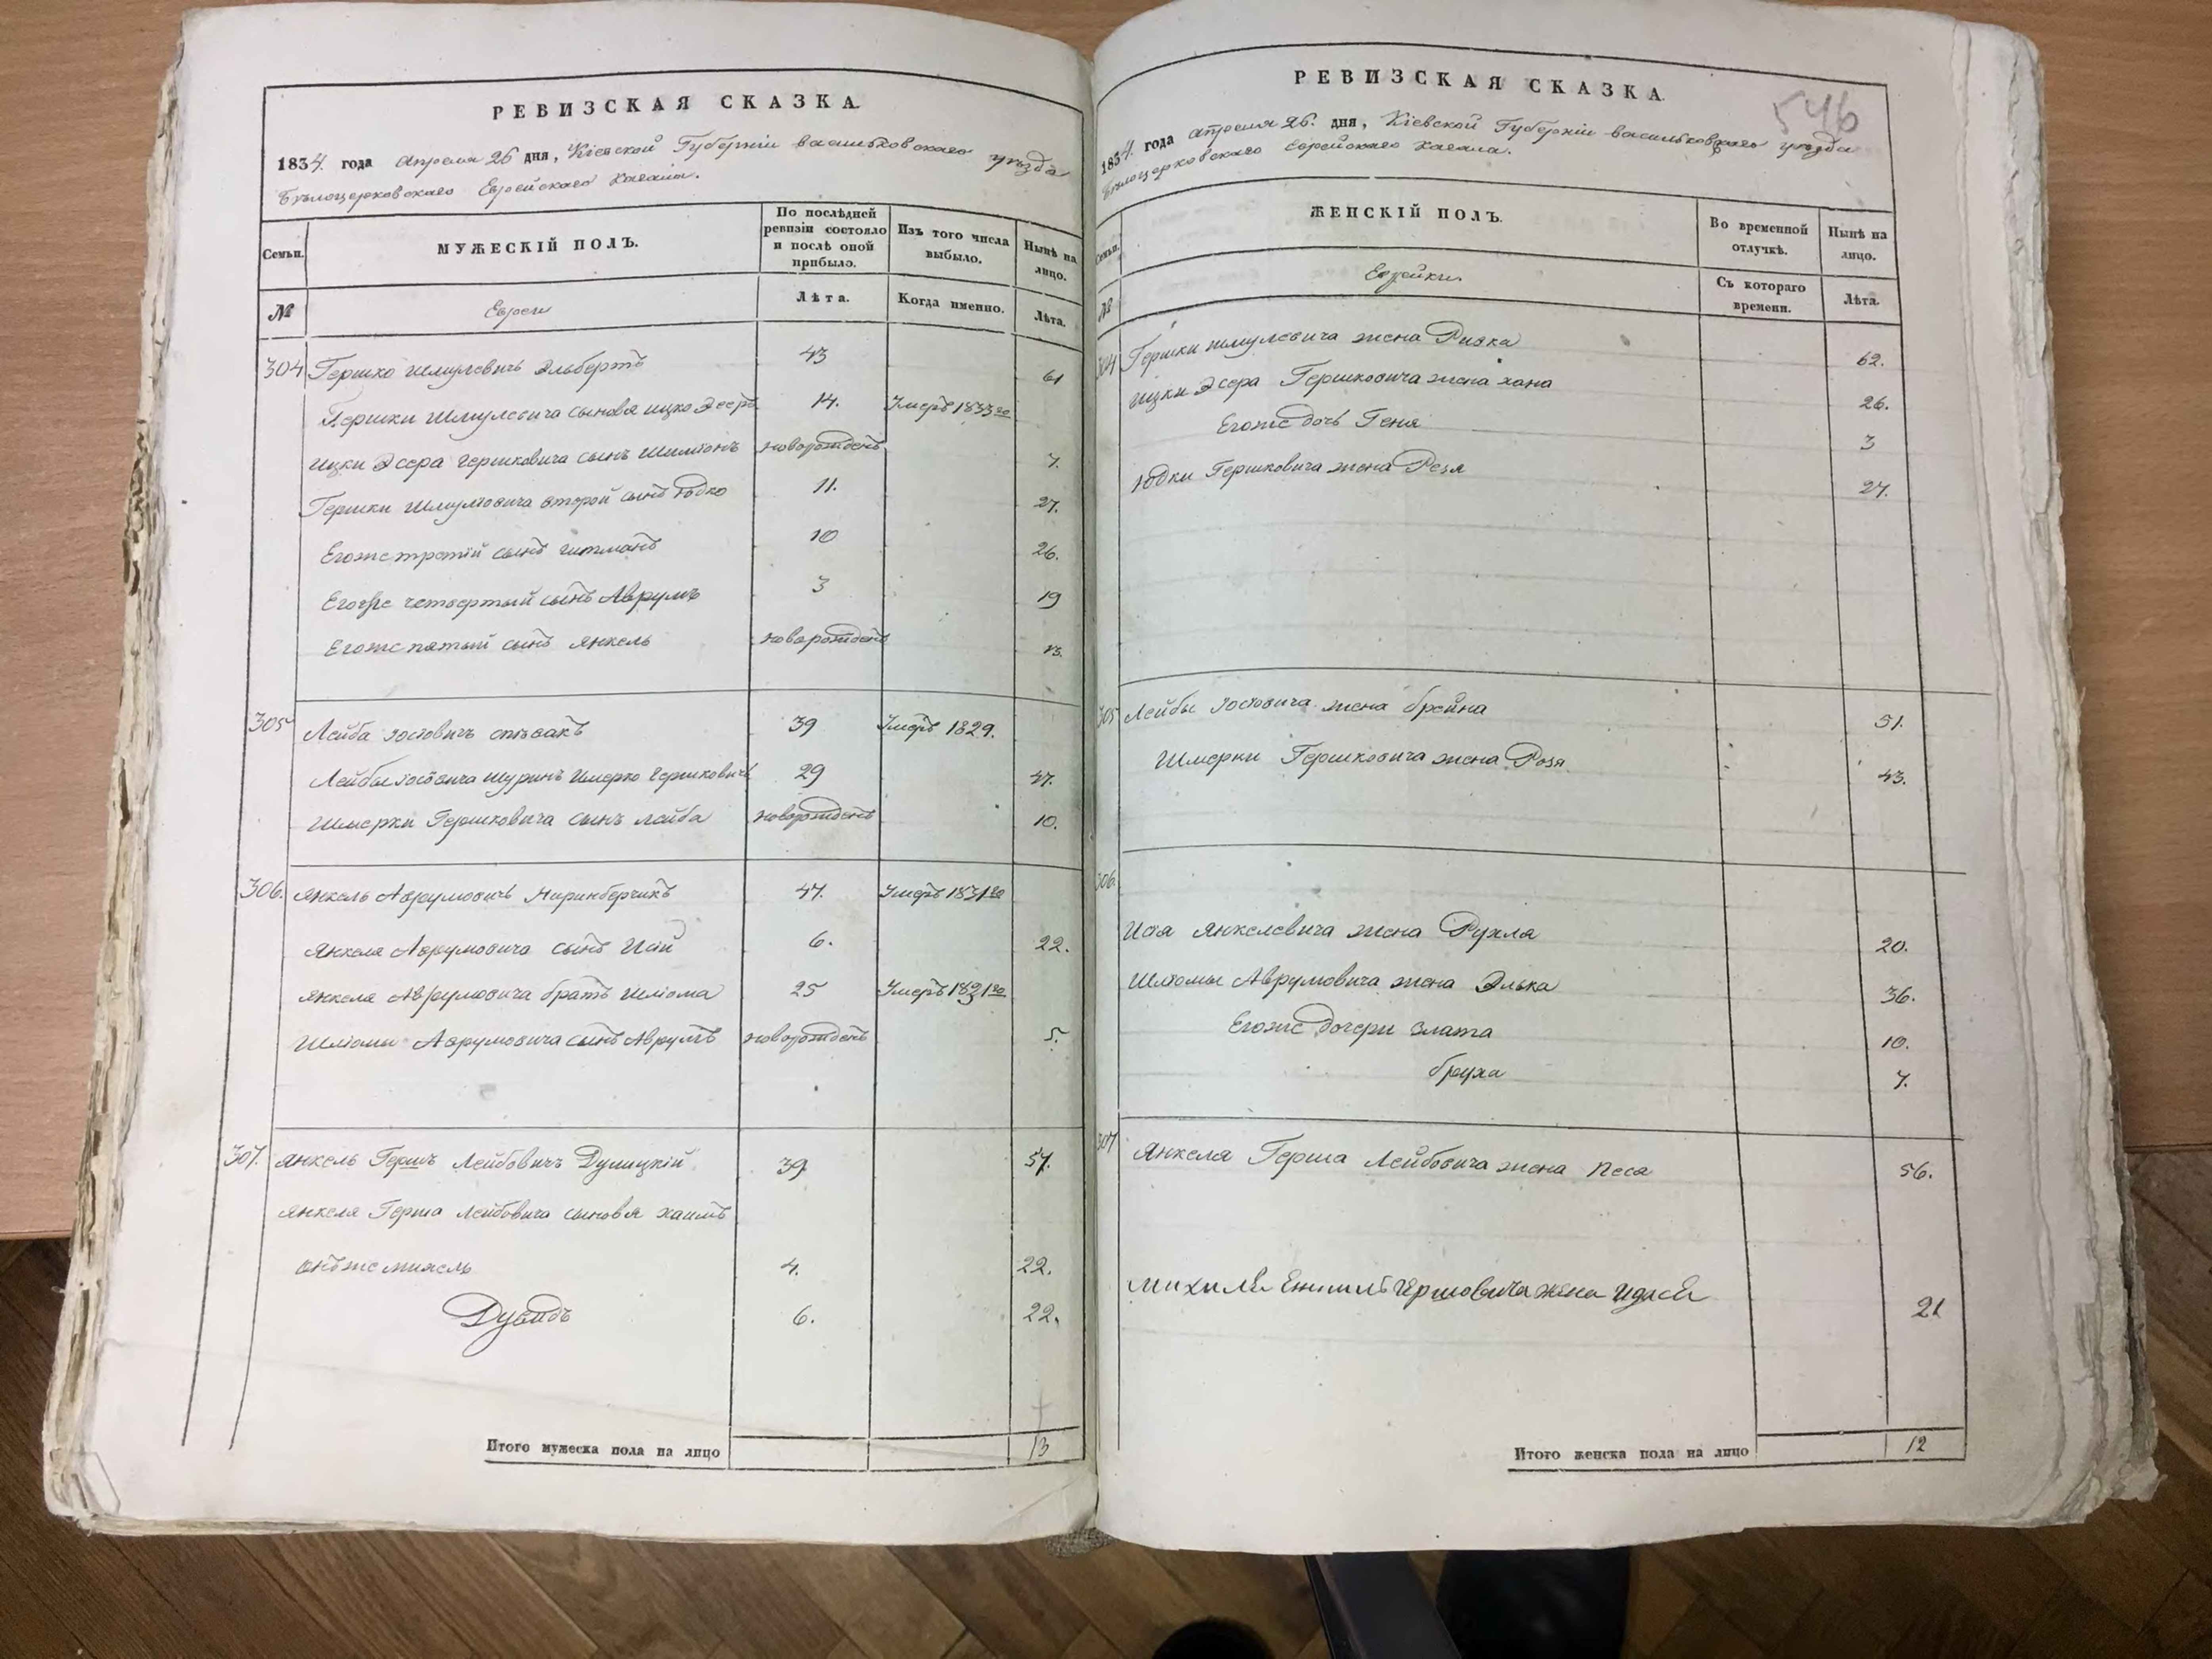 РЕВИЗСКАЯ СКАЗКА.
1834 года Апреля 26 дня, Кіевской Губерніи васильковскаго уѣзда
Бѣлоцерковскаго Еврейскаго Кагала.
Семьи.
МУЖЕСКІЙ ПОЛЪ.
По послѣдней ревизіи состояло и послѣ оной прибыло.
Изъ того числа выбыло.
Нынѣ на лицо.
№
Евреи
Лѣта.
Когда именно.
Лѣта.
304 Гершко Шмулевичъ Эльбертъ 43 61
Гершки Шмулевича сыновя ицко Эсеръ 14. Умеръ 1833го
ицки Эсера Гершковича сынъ Шимонъ новорожденъ 7.
Гершки Шмулевича второй сынъ Юдко 11. 27.
Егоже третій сынъ гитманъ 10 26.
Егоже четвертый сынъ Аврумъ 3 19
Егоже пятый сынъ янкель новорожденъ 13.
305 Лейба Іосіовичъ спѣвакъ 39 Умеръ 1829.
Лейбы Іосіовича шуринъ Шмерко Гершковичъ 29 47.
Шмерки Гершковича сынъ лейба новорожденъ 10.
306. янкель Аврумовичъ Ниринберчикъ 47. Умеръ 1831го
янкеля Аврумовича сынъ Исай 6. 22.
янкеля Аврумовича братъ Шліома 25 Умеръ 1831го
Шліомы Аврумовича сынъ Аврумъ новорожденъ 5.
307. янкель Гершъ Лейбовичъ Дулицкій 39. 57.
янкеля Герша Лейбовича сыновя хаимъ
онъже михель 4. 22.
Дувидъ 6. 22.
Итого мужеска пола на лицо 13
546
РЕВИЗСКАЯ СКАЗКА.
1834 года Апреля 26. дня, Кіевской Губерніи васильковскаго уѣзда
Бѣлоцерковскаго Еврейскаго Кагала.
Семьи.
ЖЕНСКІЙ ПОЛЪ.
Во временной отлучкѣ.
Нынѣ на лицо.
№
Еврейки
Съ котораго времени.
Лѣта.
304 Гершки шмулевича жена Ривка 62.
ицки Эсера Гершковича жена хана 26.
Егоже дочь Геня 3
Юдки Гершковича жена Реизя 27.
305 Лейбы Іосіовича жена брейна 51.
Шмерки Гершковича жена Розя 43.
306.
Исая янкелевича жена Рухля 20.
Шліомы Аврумовича жена Элька 36.
Егоже дочери злата 10.
бруха 7.
307 янкеля Герша Лейбовича жена песя 56.
жена 21
Итого женска пола на лицо 12